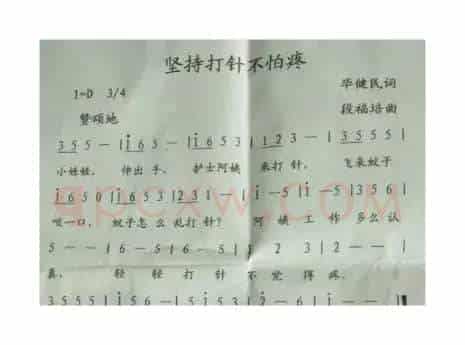 坚持打针不怕疼
1=D 3/4
毕健民词
段福培曲
赞颂地
3 5 5 | i 6 5 | i 6 5 3 | 1 2 3 — | 3 5 5 5 5 |
小娃娃, 伸出手, 护士阿姨 来打针, 飞来蚊子
i 6 5 0 | i 6 5 3 | 2 3 1 — | i — i | 5 — i | 3 5 6 |
咬一口, 蚊子怎么乱打针? 阿姨工作多么认
5 — — | i 6 — | 5 | 6 — 5 | 6 5 | 2 3 | 2 — — |
真, 轻轻打针不觉得疼。
3 5 5 5 | i 5 6 — | i 5 3 5 | 2 — 6 | i — — |